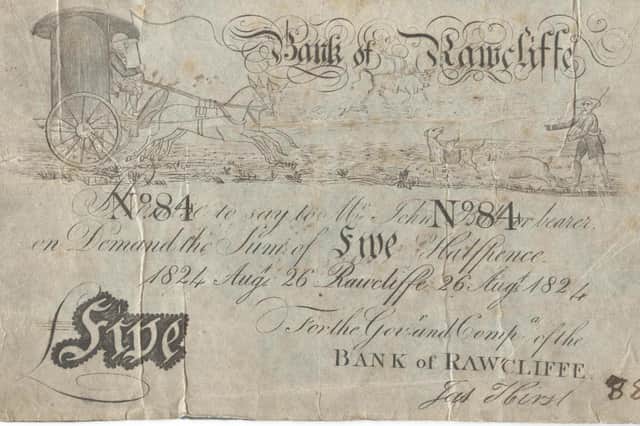 Bank of Rawcliffe
I Promise to say to Mr. John Bull or bearer
No84 No84
on Demand the Sum of Five Halfpence
1824 Augt 26 Rawcliffe 26 Augt 1824
For the Govr and Compa of the
Five
BANK of RAWCLIFFE
Jas Hirst